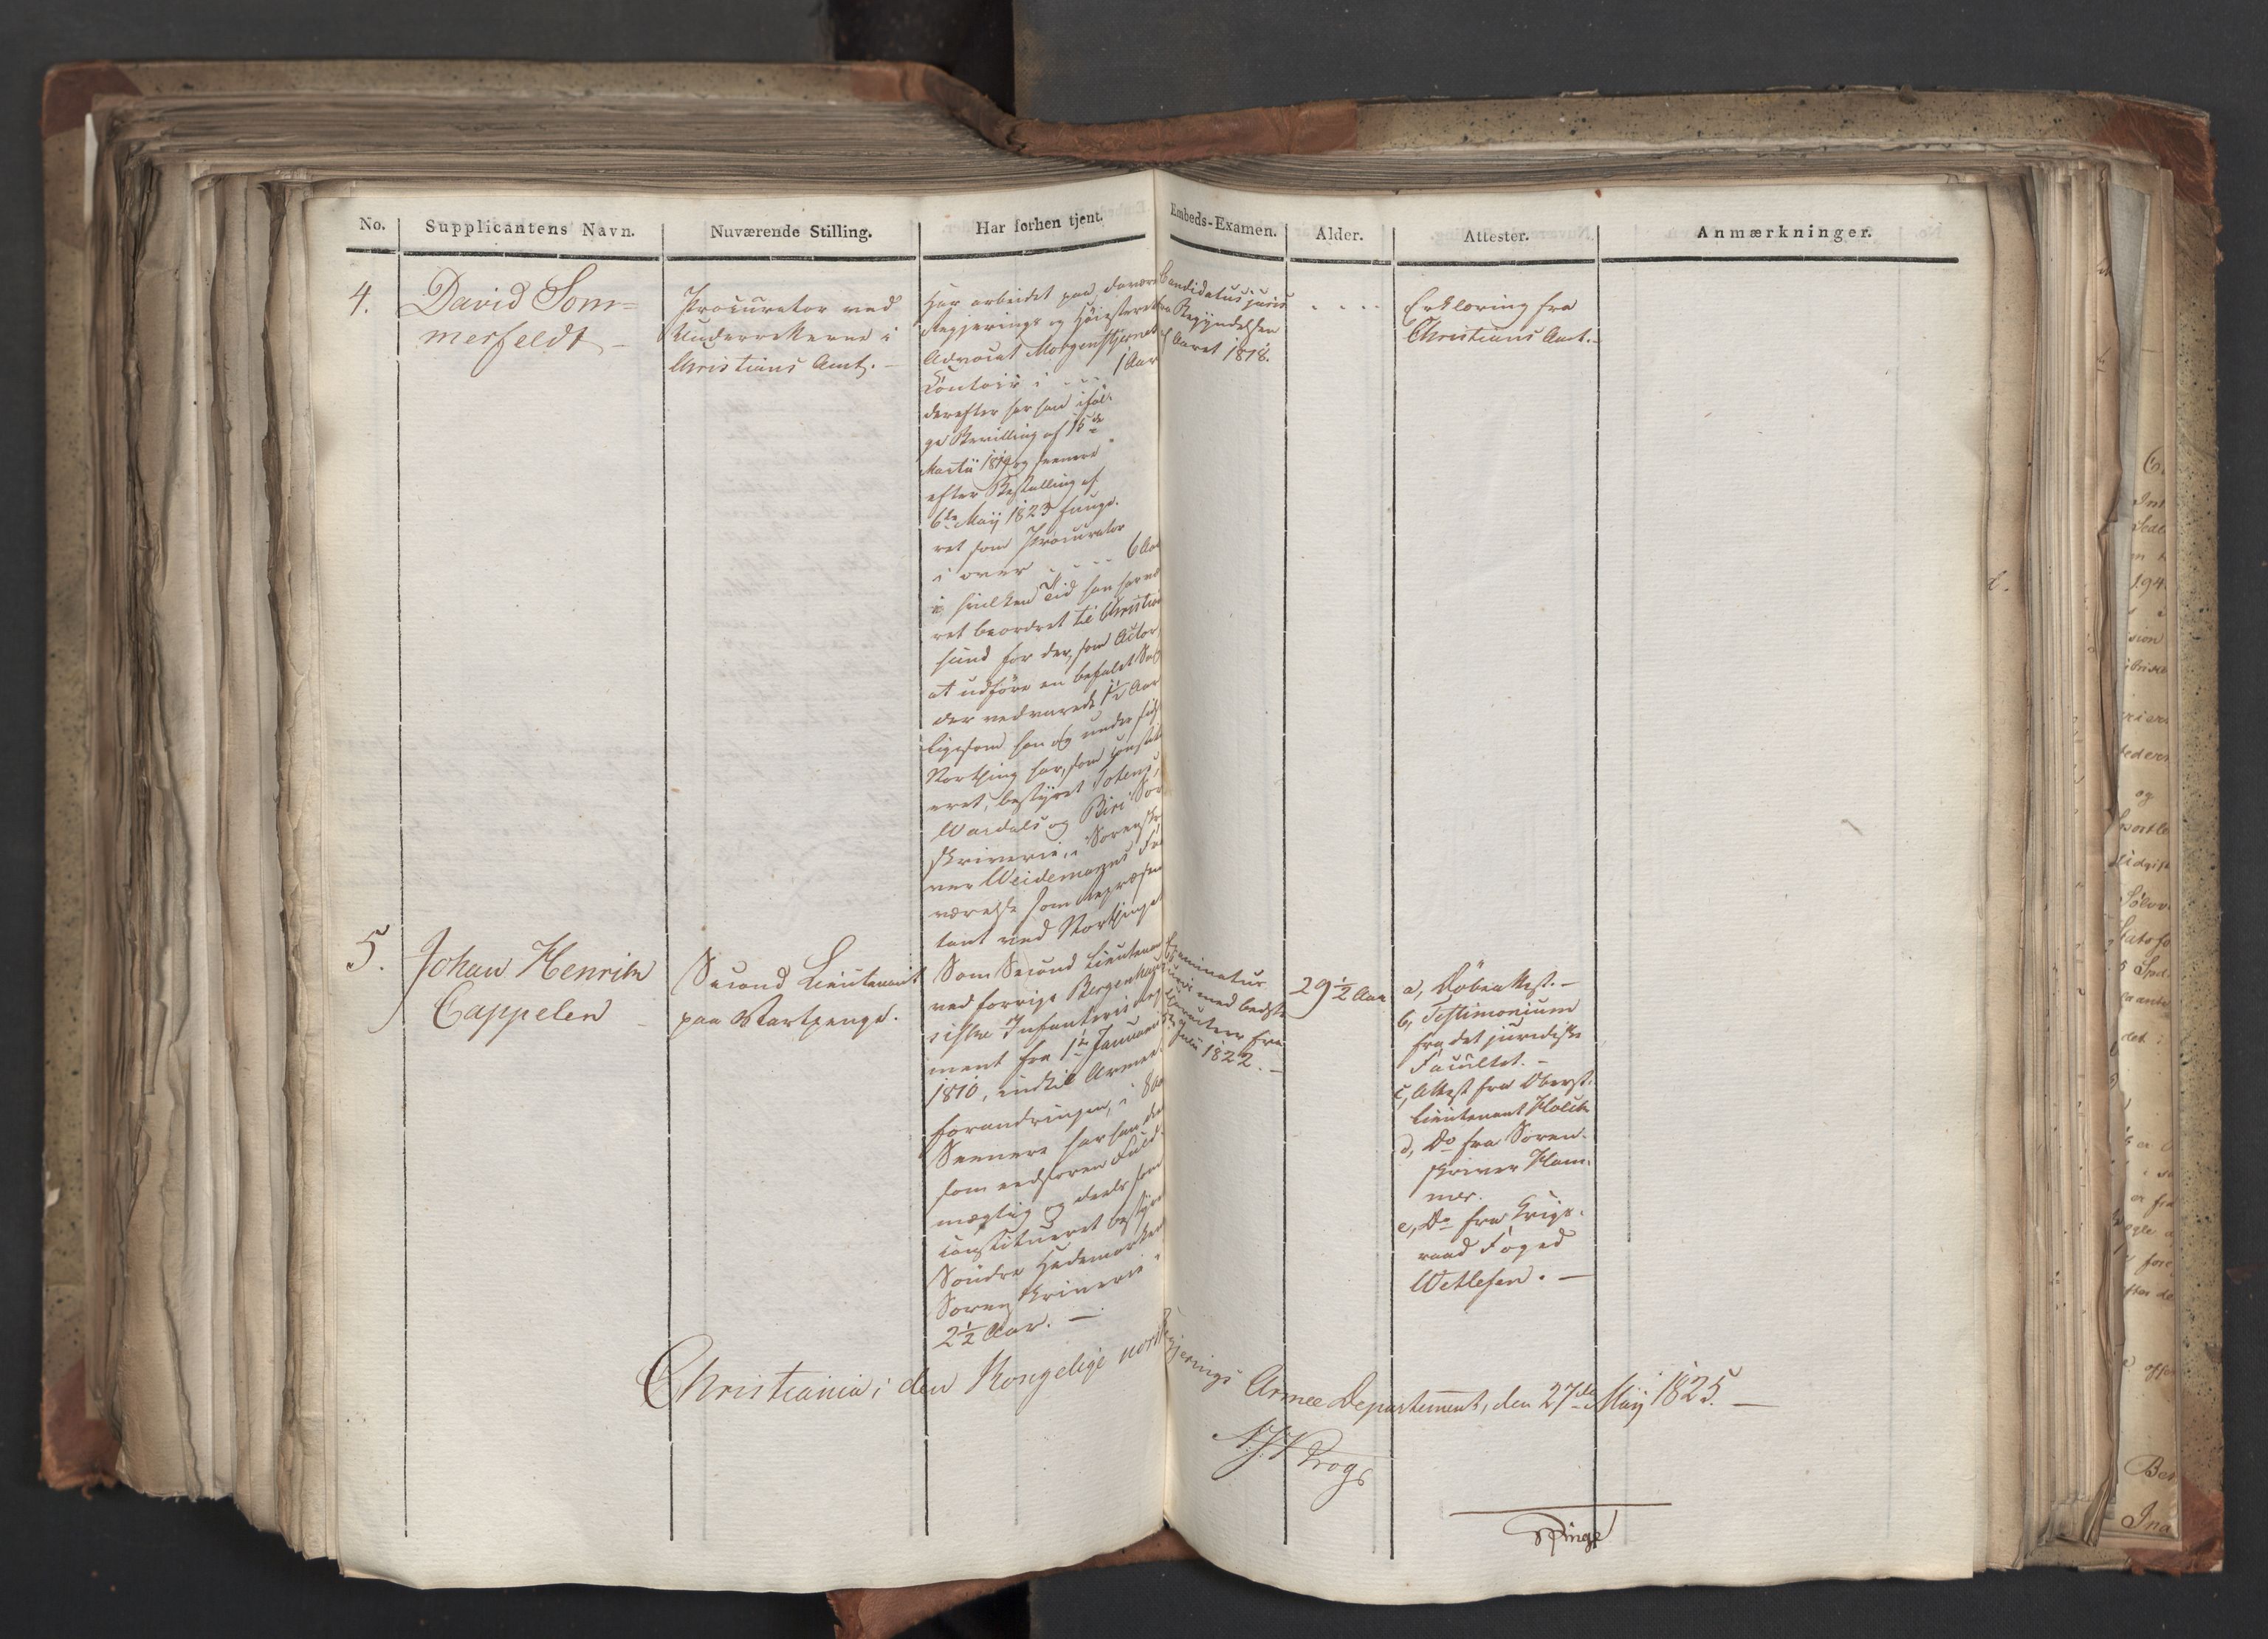 No.
Supplicantens Navn.
Nuværende Stilling.
Har forhen tjent.
Embeds-Examen.
Alder.
Attester.
Anmærkninger.
4.
David Som=
merfeldt
Procurator ved
Underretterne i
Christians Amt. -
Har arbeidet paa daværende
Regjerings og Høiesterets
Advocat Morgenstjernes
Contoir i - - - 1 Aar
derefter har han iføl-
ge Bevilling af 15de
Martii 1819 og senere
efter Bestalling af
6te Maij 1823 funge-
ret som Procurator
i over - - - - 6 Aar
i hvilken Tid han har væ
ret beordret til Christian
sund for der, som Actor,
at udføre en befalet Sag
der vedvarede 1½ Aar
ligesom han og under sidste
Storthing har, som constitu
eret, bestyret Totens,
Wardals og Biri Sor
skriverie, i Sorenskri
ver Weidemanns Fra
værelse som Repræsen
tant ved Storthinget
Candidatus juris
fra Begyndelsen
af Aaret 1818.
- - - -
Erklæring fra
Christians Amt. -
5.
Johan Henrik
Cappelen
Second Lieutenant
paa Vartpenge.
Som Second Lieutenant
ved forrige Bergenhuu
siske Infanterie Reg
ment fra 1te Januarii
1810, indtil Armee
forandringen, i 8 Aar
Seenere har han deels
som eedsvoren Fuld-
mægtig og deels som
constitueret bestyret
Søndre Hedemarkens
Sorenskriverie i
2½ Aar. -
Examinatus
juris med bedste
Caracteer fra
5te Julii 1822. -
29½ Aar
a, Døbeattest. -
b, Testimonium
fra det juridiske
Facultet. -
c, Attest fra Oberst-
lieutenant Holck
d, Do fra Soren-
skriver Ham-
mer.
e, Do fra Krigs-
raad Foged
Wetlesen. -
Christiania i den Kongelige norske Regjerings Armee Departement, den 27de Maij 1825. -
Krogh